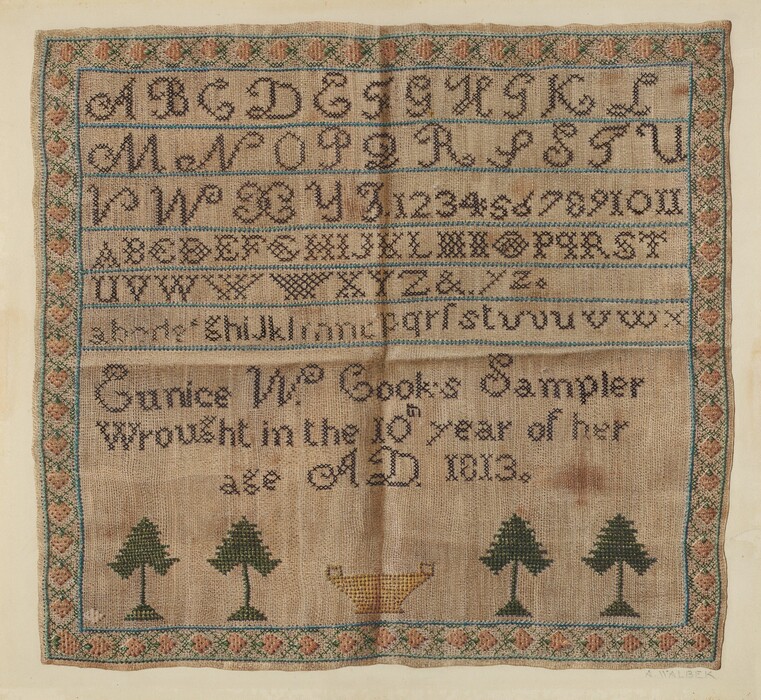 A B C D E F G H G K L
M N O P Q R S T U
V W X Y Z 1 2 3 4 5 6 7 8 9 10 11
A B C D E F G H I J K L M N O P Q R S T
U V W X Y Z & . y z .
a b c d e f g h i J k l m n o p q r f s t u v w x
Eunice W. Cook's Sampler
Wrought in the 10th year of her
age A.D. 1813.
A. WALBEK